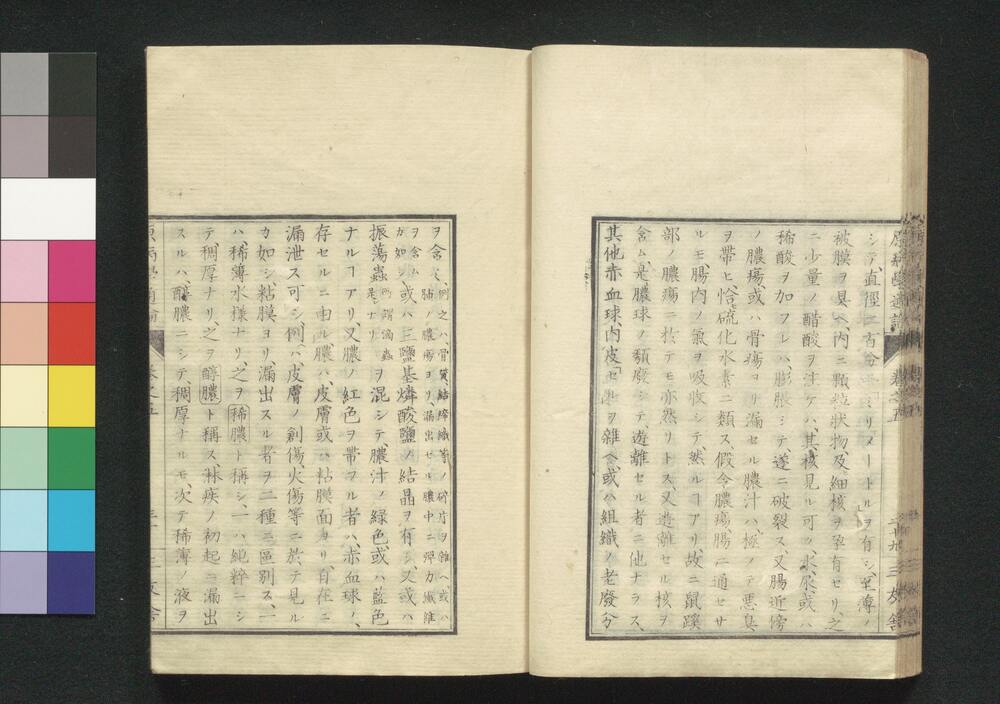 シテ、直徑二百分ミリメートルヲ有シ、至薄ノ
被膜ヲ具ヘ、內ニ顆粒狀物、及細核ヲ孕有セリ、之
ニ少量ノ醋酸ヲ注ケハ、其核見ル可ク、水、尿、或ハ
稀酸ヲ加フレハ、膨脹シテ遂ニ破裂ス、又腸近傍
ノ膿瘍、或ハ骨瘍ヨリ漏セル膿汁ハ、極メテ惡臭
ヲ帶ヒ、恰モ硫化水素ニ類ス、假令膿瘍腸ニ通セサ
ルモ、腸內ノ氣ヲ吸收シテ然ルコアリ、故ニ鼠蹊
部ノ膿瘍ニ於テモ亦然リトス、又遊離セル核ヲ
含ム、是膿球ノ頽廢シテ、遊離セル者ニ他ナラス、
其他赤血球、內皮「セルレ」ヲ雜ヘ、或ハ組織ノ老廢分
卷之五
三文舍
ヲ含ミ、例之ハ、骨質結締織等ノ碎片ヲ雜ヘ、或ハ
肺ノ膿瘍ヨリ漏出セル膿中ニ彈力纖維
ヲ含ムカ如シ、或ハ三鹽基燐酸鹽ノ結晶ヲ有シ、又或ハ
振蕩蟲所謂滴蟲是ナリヲ混シテ、膿汁ノ綠色或ハ藍色
ナルコアリ、又膿ノ紅色ヲ帶フル者ハ、赤血球ノ、
存セルニ由ル、膿ハ皮膚或ハ粘膜面ヨリ、自在ニ
漏泄ス可シ、例ハ皮膚ノ創傷、火傷等ニ於テ見ル
カ如シ、粘膜ヨリ、漏出スル者ヲ二種ニ區別ス、一
ハ、稀薄水樣ナリ、之ヲ稀膿ト稱シ、一ハ純粹ニシ
テ、稠厚ナリ、之ヲ醇膿ト稱ス、淋疾ノ初起ニ漏出
スルハ、醇膿ニシテ、稠厚ナルモ、次テ稀薄ノ液ヲ